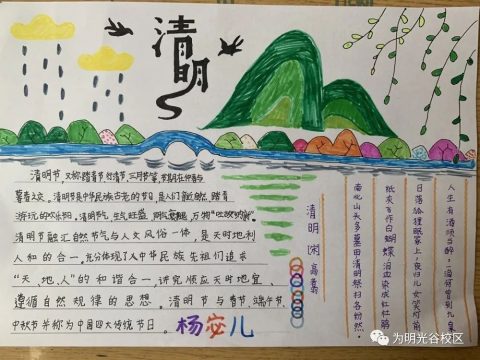 清明
清明节，又称踏青节、行清节、三月节等，节期在仲春与
暮春之交。清明节是中华民族古老的节日，是人们亲近自然、踏青
游玩的欢乐节。清明节气，生气旺盛
清明节融汇自然节气与人文风俗一体，是天时地利
人和的合一，充分体现了中华民族先祖们追求
“天、地、人”的和谐合一，讲究顺应天时地宜、
遵循自然规律的思想。清明节与春节、端午节、
中秋节并称为中国四大传统节日。
杨安儿
清明 [宋] 高翥
南北山头多墓田，清明祭扫各纷然。
纸灰飞作白蝴蝶，泪血染成红杜鹃。
日落狐狸眠冢上，夜归儿女笑灯前。
人生有酒须当醉，一滴何曾到九泉
为明光谷校区